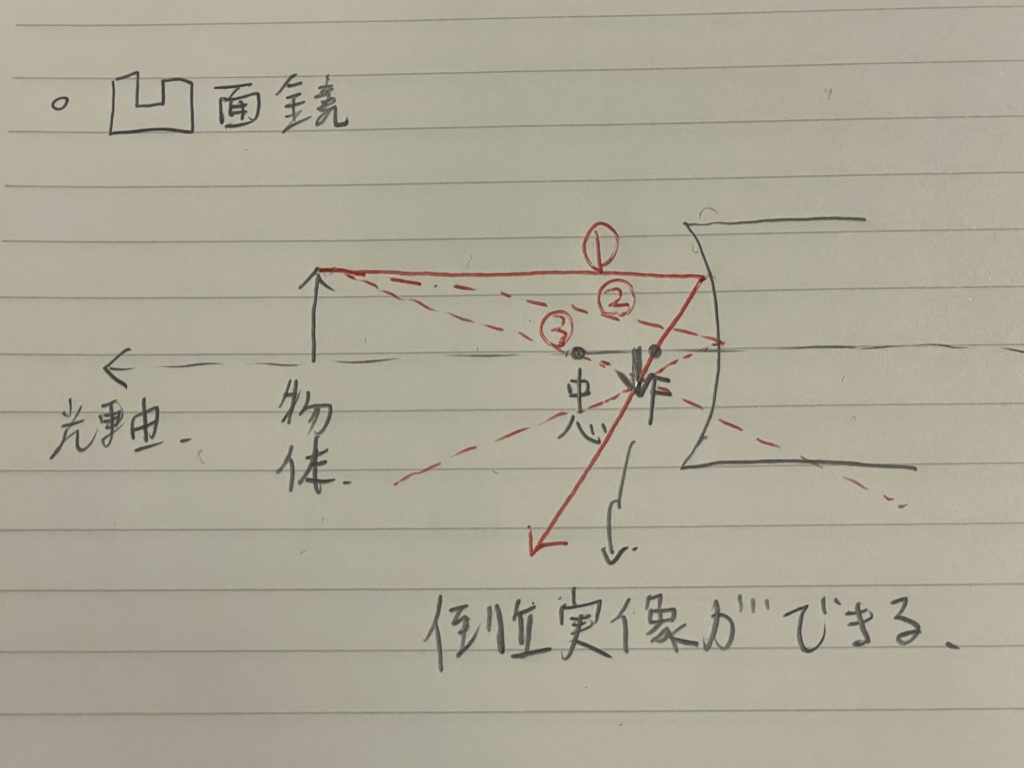 ○ 凹面鏡
①
②
③
光軸.
物
体.
倒立実像ができる.